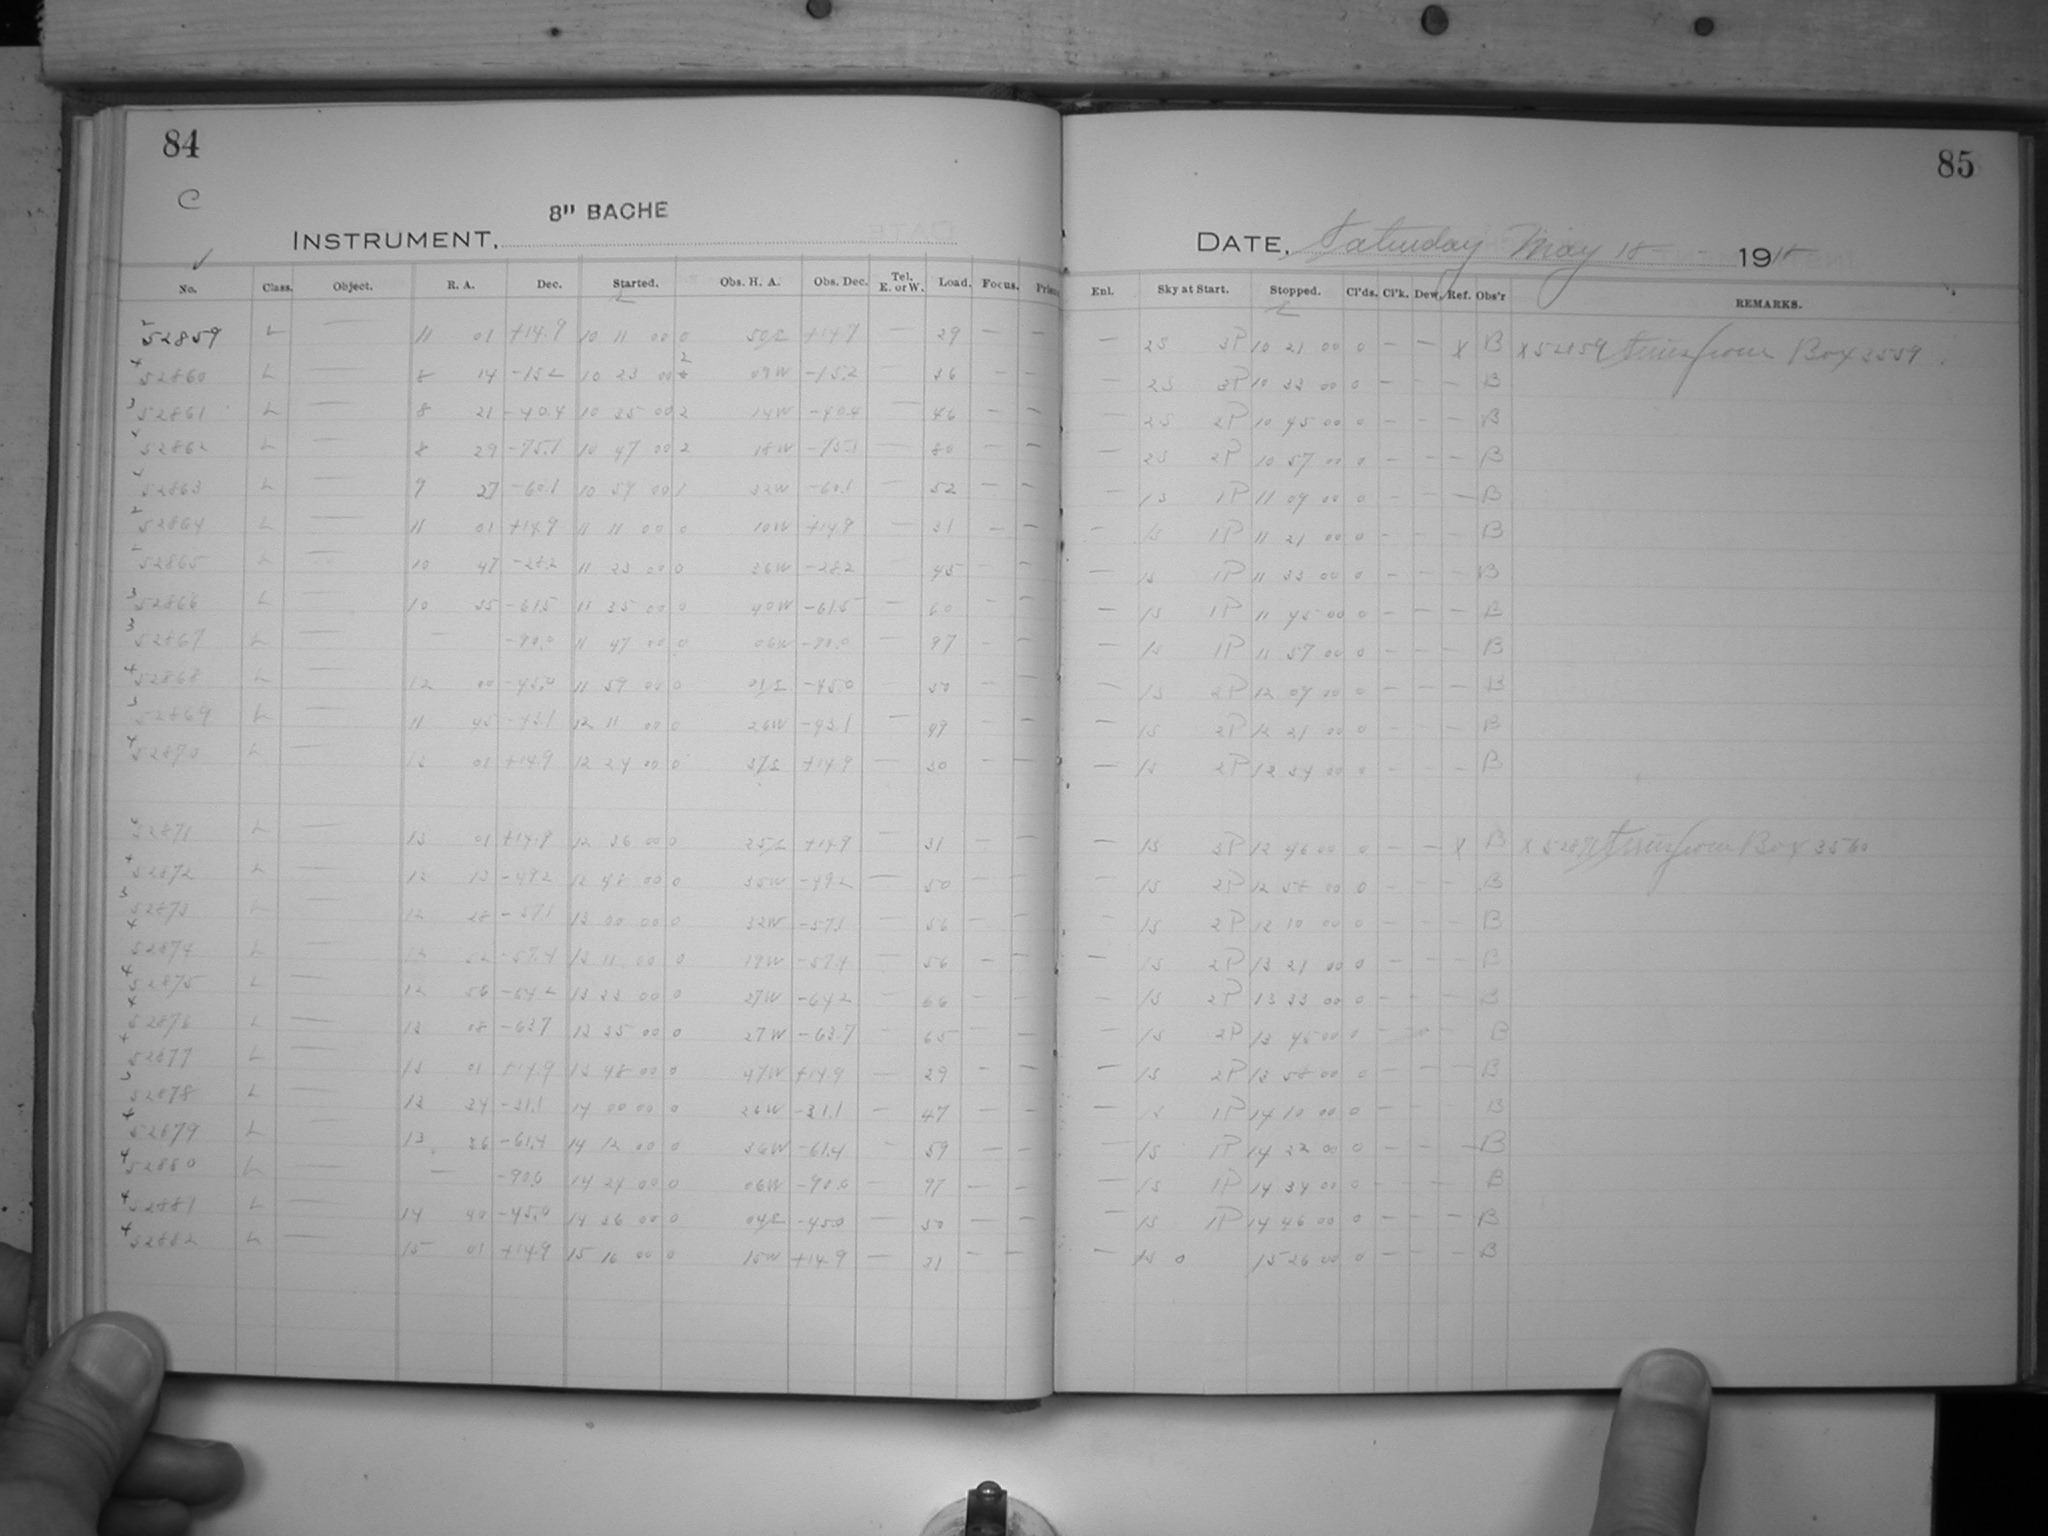 84
C
8" BACHE
INSTRUMENT,
No. Class. Object. R. A. Dec. Started. Obs. H. A. Obs. Dec. Tel. E. or W. Load. Focus.
52859 L — 11 01 +14.9 10 11 00 0 +14.9 — 29 — —
52860 L — 8 14 -15.2 10 23 00 2 09W -15.2 — 36 — —
52861 L — 8 21 -40.4 10 35 00 2 14W -40.4 — 46 — —
52862 L — 8 29 -75.1 10 47 00 2 18W -75.1 — 80 — —
52863 L — 9 27 -60.1 10 59 00 1 32W -60.1 — 52 — —
52864 L — 11 01 +14.9 11 11 00 0 10W +14.9 — 31 — —
52865 L — 10 47 -28.2 11 23 00 0 36W -28.2 — 45 — —
52866 L — 10 55 -61.5 11 35 00 0 40W -61.5 — 60 — —
52867 L — — -90.0 11 47 00 0 06W -90.0 — 97 — —
52868 L — 12 00 -45.0 11 59 00 0 -45.0 — 50 — —
52869 L — 11 45 -43.1 12 11 00 0 26W -43.1 — 49 — —
52870 L — 13 01 +14.9 12 24 00 0 +14.9 — 30 — —
52871 L — 13 01 +14.9 12 36 00 0 +14.9 — 31 — —
52872 L — 12 13 -49.2 12 48 00 0 35W -49.2 — 50 — —
52873 L — 12 28 -57.1 13 00 00 0 32W -57.1 — 56 — —
52874 L — 12 52 -57.4 13 11 00 0 19W -57.4 — 56 — —
52875 L — 12 56 -64.2 13 23 00 0 27W -64.2 — 66 — —
52876 L — 13 08 -63.7 13 35 00 0 27W -63.7 — 65 — —
52877 L — 13 01 +14.9 13 48 00 0 47W +14.9 — 29 — —
52878 L — 13 34 -31.1 14 00 00 0 26W -31.1 — 47 — —
52879 L — 13 36 -61.4 14 12 00 0 36W -61.4 — 59 — —
52880 L — — -90.0 14 24 00 0 06W -90.0 — 97 — —
52881 L — 14 40 -45.0 14 36 00 0 04E -45.0 — 50 — —
52882 L — 15 01 +14.9 15 16 00 0 15W +14.9 — 31 — —
85
DATE, Saturday May 18 1918
Enl. Sky at Start. Stopped. Cl'ds. Cl'k. Dew. Ref. Obs'r REMARKS.
— 2S 3P 10 21 00 0 — — X B X 52859 from Box 3559
— 2S 3P 10 33 00 0 — — — B
— 2S 2P 10 45 00 0 — — — B
— 2S 2P 10 57 00 0 — — — B
— 1S 1P 11 09 00 0 — — — B
— 1S 1P 11 21 00 0 — — — B
— 1S 1P 11 33 00 0 — — — B
— 1S 1P 11 45 00 0 — — — B
— 1S 1P 11 57 00 0 — — — B
— 1S 2P 12 09 00 0 — — — B
— 1S 2P 12 21 00 0 — — — B
— 1S 2P 12 34 00 0 — — — B
— 1S 3P 12 46 00 0 — — X B X 52871 from Box 3560
— 1S 2P 12 58 00 0 — — — B
— 1S 2P 12 10 00 0 — — — B
— 1S 2P 13 21 00 0 — — — B
— 1S 2P 13 33 00 0 — — — B
— 1S 2P 13 45 00 0 — — B
— 1S 2P 13 58 00 0 — — — B
— 1S 1P 14 10 00 0 — — — B
— 1S 1P 14 22 00 0 — — — B
— 1S 1P 14 34 00 0 — — — B
— 1S 1P 14 46 00 0 — — — B
— 1S 0 15 26 00 0 — — — B